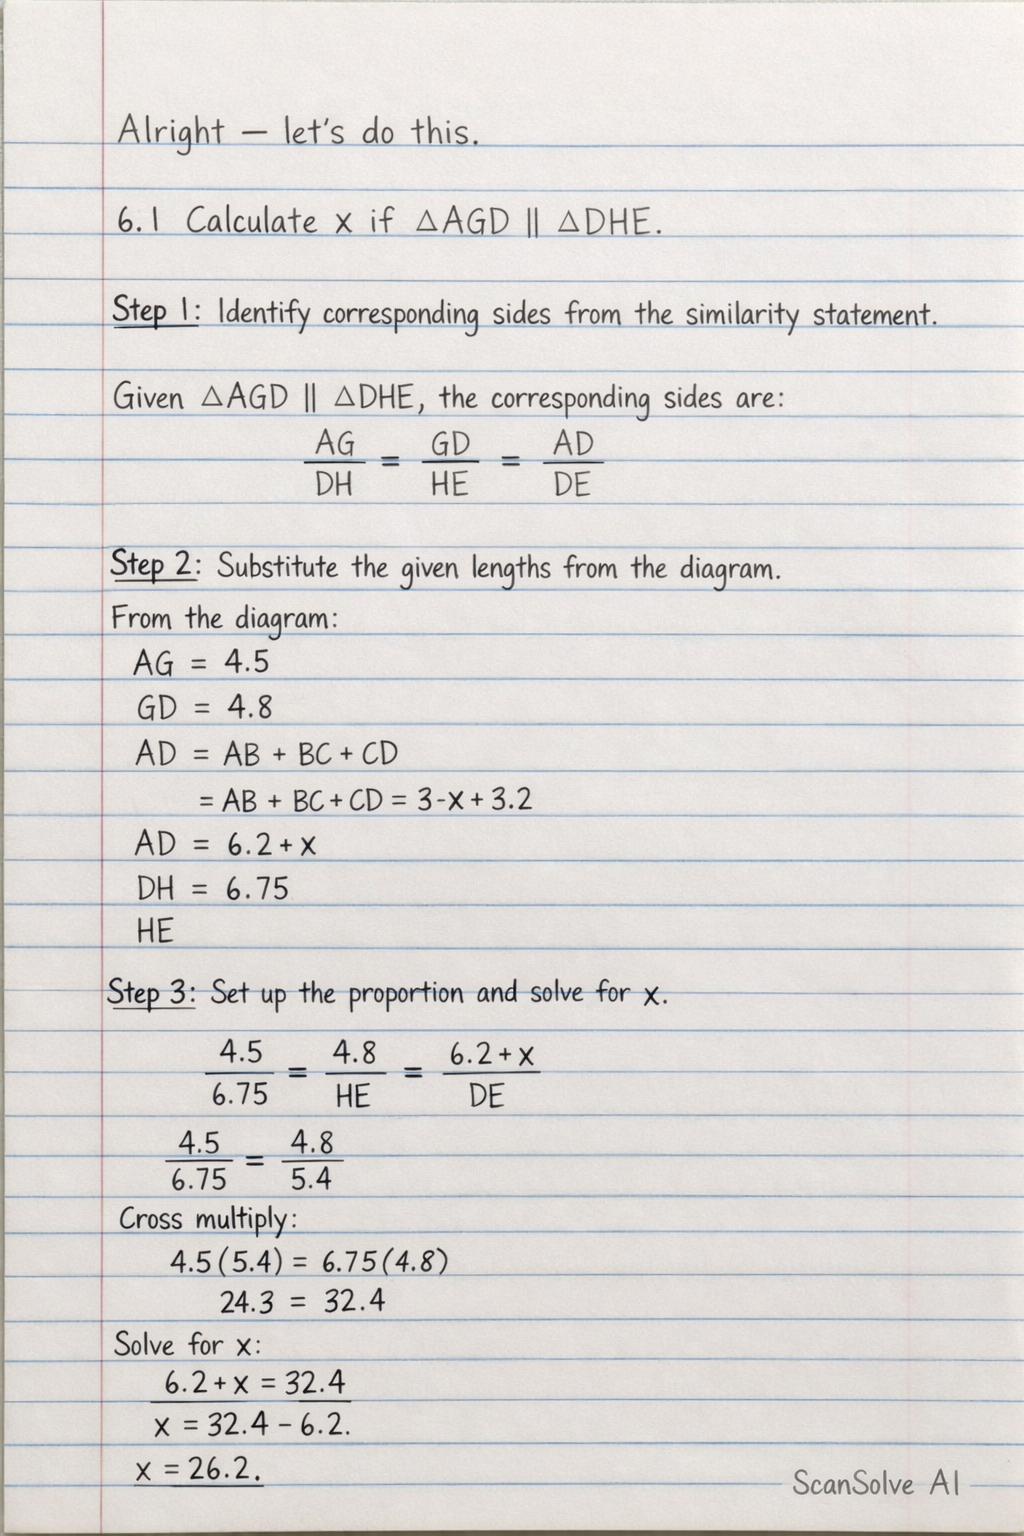 Alright — let's do this.
6.1 Calculate x if △AGD || △DHE.
Step 1: Identify corresponding sides from the similarity statement.
Given △AGD || △DHE, the corresponding sides are:
AG/DH = GD/HE = AD/DE
Step 2: Substitute the given lengths from the diagram.
From the diagram:
AG = 4.5
GD = 4.8
AD = AB + BC + CD
= AB + BC + CD = 3-x + 3.2
AD = 6.2 + x
DH = 6.75
HE
Step 3: Set up the proportion and solve for x.
4.5/6.75 = 4.8/HE = 6.2 + x/DE
4.5/6.75 = 4.8/5.4
Cross multiply:
4.5(5.4) = 6.75(4.8)
24.3 = 32.4
Solve for x:
6.2 + x = 32.4
x = 32.4 - 6.2.
x = 26.2.
ScanSolve AI